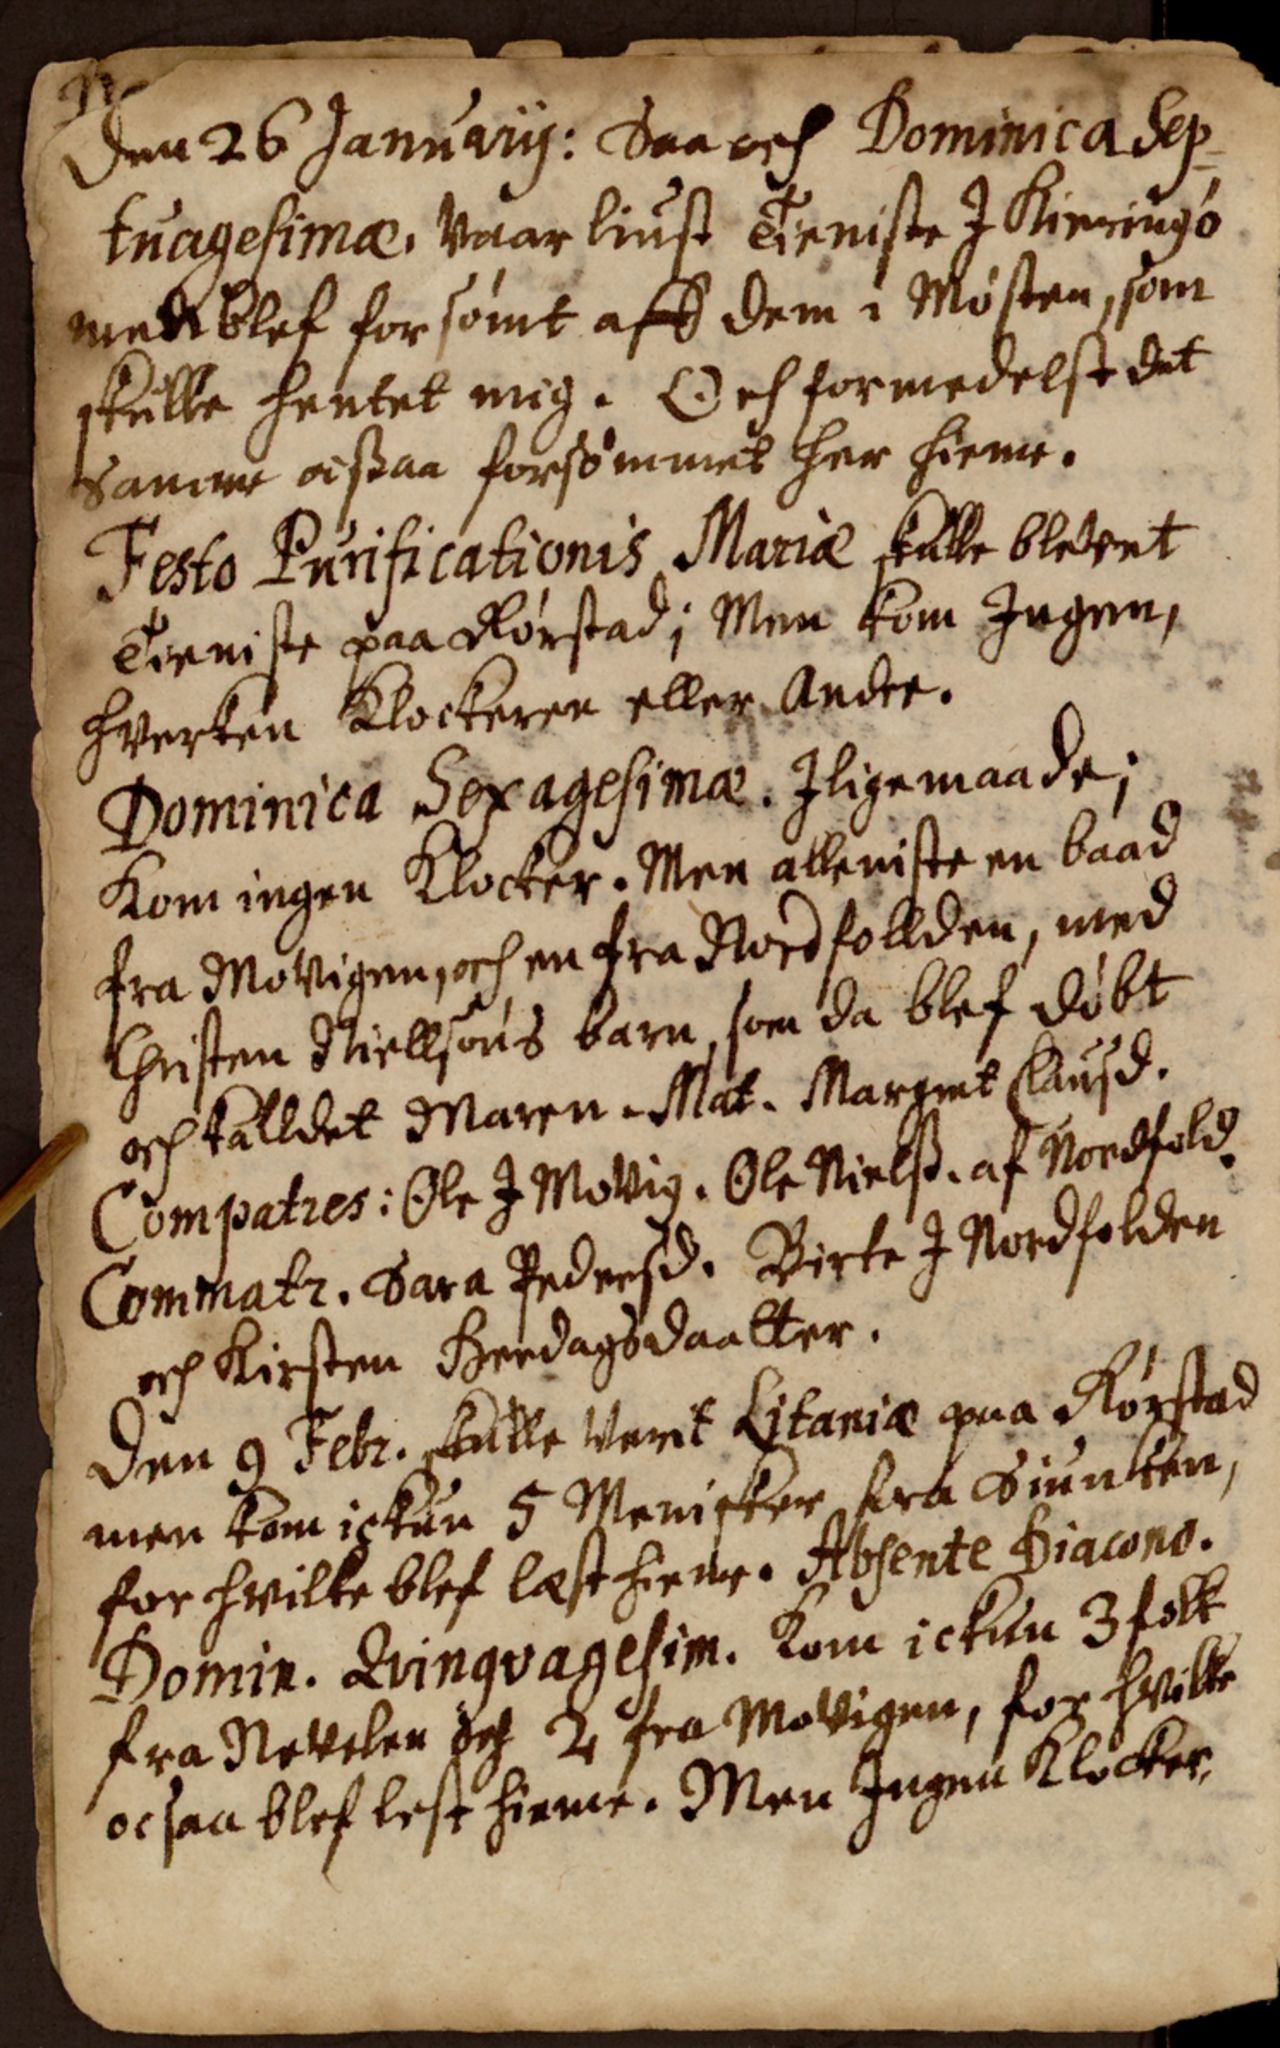 Den 26 Januarij: Saa och Dominica Sep-
tuagesimæ. Vaar liust Tieniste J Kieringö
men blef forsömt aff dem i Mösten, som
skulle hentet mig. Och formedelst det
samme ocsaa forsömmet her hieme.
Festo Purificationis Mariæ skulle blevet
Tieniste paa Rörstad; Men kom Ingen,
hverken Klockeren eller Andre.
Dominica Sexagesimæ. Jligemaade;
Kom ingen Klocker. Men alleniste en baad
fra Movigen, och en fra Nordfollden, med
Christen Niellsöns barn, som da blef döbt
och kalldet Maren. Mat. Margret Clausd.
Compatres: Ole J Movig. Ole Nielss. af Nordfold.
Commatr. Sara Pedersd. Birte J Nordfolden
och Kirsten Heedagsdaatter.
Den 9 Febr. skulle Verit Litaniæ paa Rörstad
men kom ickun 5 Menisker fra Siunken,
for hvilke blef læst hieme. Absente Diacono.
Domin. Qvinqvagesim. Kom ickun 3 folk
fra Nevelen och 2 fra Movigen, for hvilke
ocsaa blef lest hieme. Men Ingen Klocker.